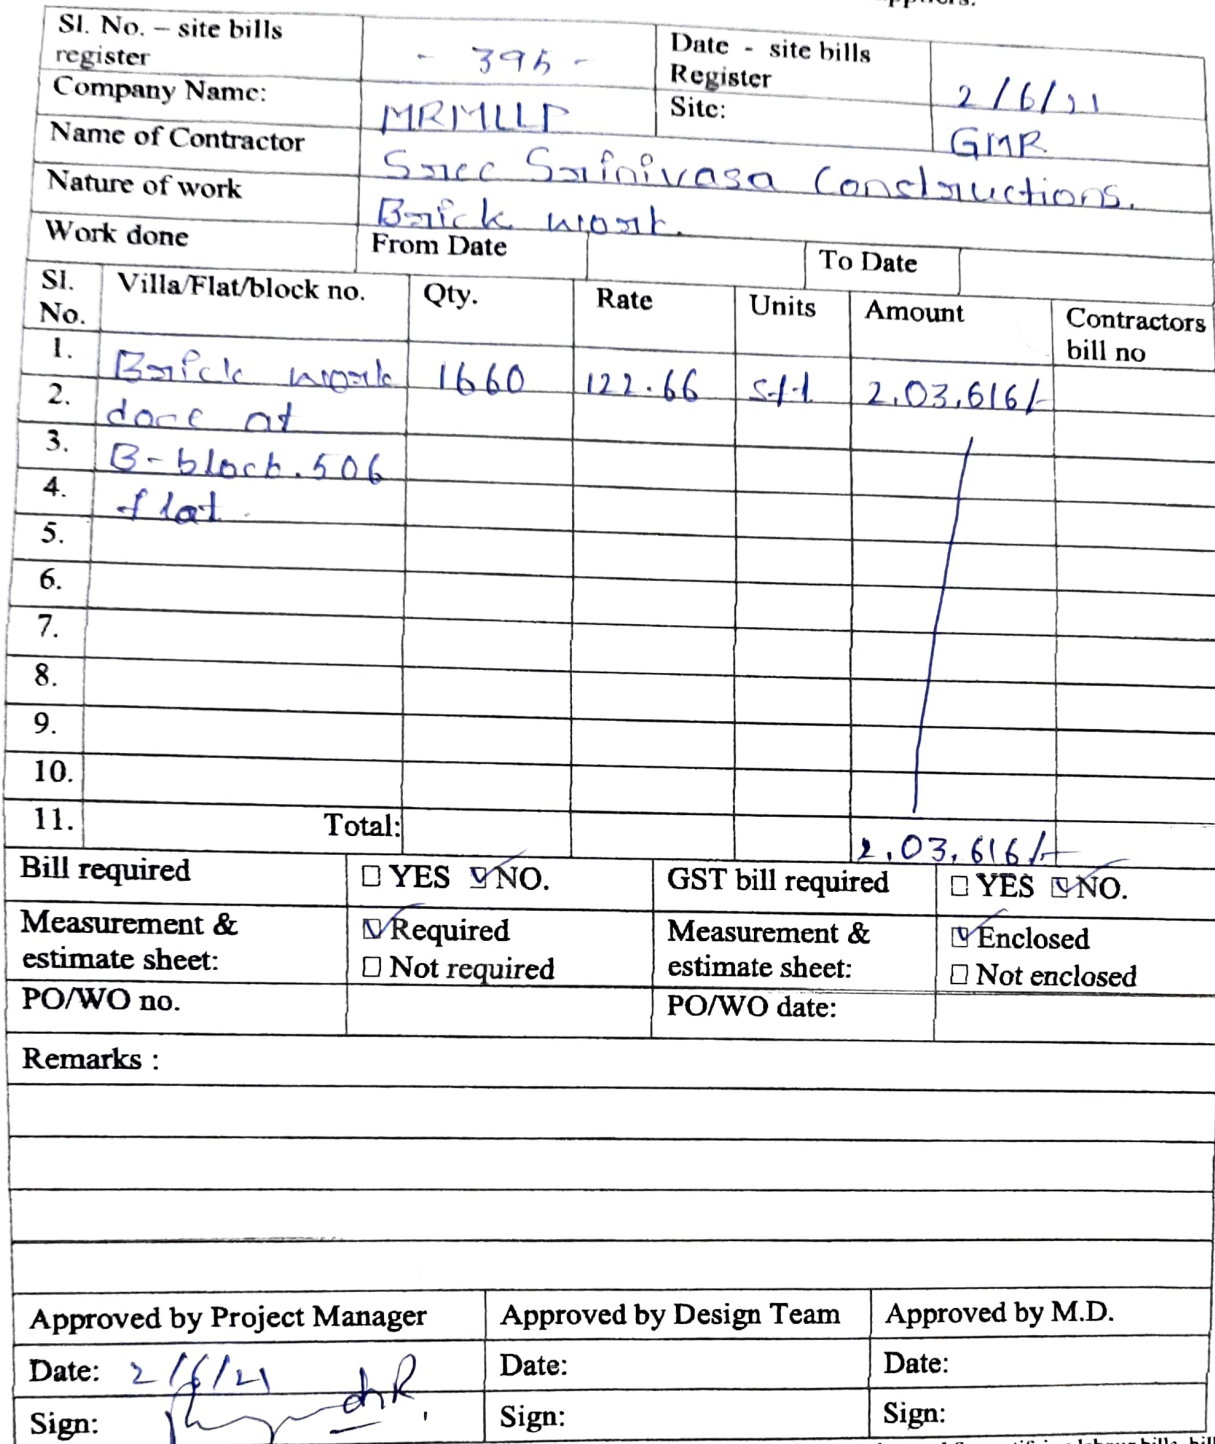 Sl. No. – site bills register - 395 - Date - site bills Register 2/6/21
Company Name: MRMLLP Site: GMR
Name of Contractor Sree Srinivasa Constructions.
Nature of work Brick work.
Work done From Date To Date
Sl. No. Villa/Flat/block no. Qty. Rate Units Amount Contractors bill no
1. Brick work 1660 122.66 sft 2,03,616/-
2. done at
3. B-block.506
4. flat.
5.
6.
7.
8.
9.
10.
11. Total: 2,03,616/-
Bill required ☐ YES ☑ NO. GST bill required ☐ YES ☑ NO.
Measurement & estimate sheet: ☑ Required Measurement & estimate sheet: ☑ Enclosed
☐ Not required ☐ Not enclosed
PO/WO no. PO/WO date:
Remarks :
Approved by Project Manager Approved by Design Team Approved by M.D.
Date: 2/6/21 Date: Date:
Sign: Sign: Sign: